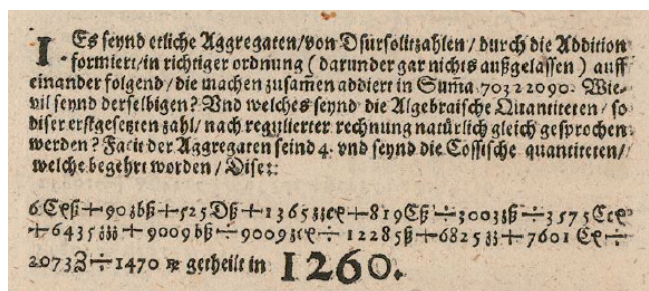 1 Es seynd etliche Aggregaten/von Dsursolitzahlen/durch die Addition
formiert/in richtiger ordnung (darunder gar nichts außgelassen) auff
einander folgend/die machen zusam̃en addiert in Sum̃a 70322090. Wie-
vil seynd derselbigen? Vnd welches seynd die Algebraische Quantiteten/so
diser erstgesetzten zahl/nach regulierter rechnung natürlich gleich gesprochen
werden? Facit der Aggregaten seind 4. vnd seynd die Cossische quantiteten/
welche begehrt worden/Dise:
6 Cꝭß + 90 ʒbß + 525 Dß + 1365 ʒʒcꝭ + 819 Cß ÷ 3003 ʒß ÷ 3575 Ccꝭ
+ 6435 ʒʒʒ + 9009 bß ÷ 9009 ʒcꝭ ÷ 12285 ß + 6825 ʒʒ + 7601 Cꝭ ÷
2073 ʒ ÷ 1470 ꝶ getheilt in 1260.